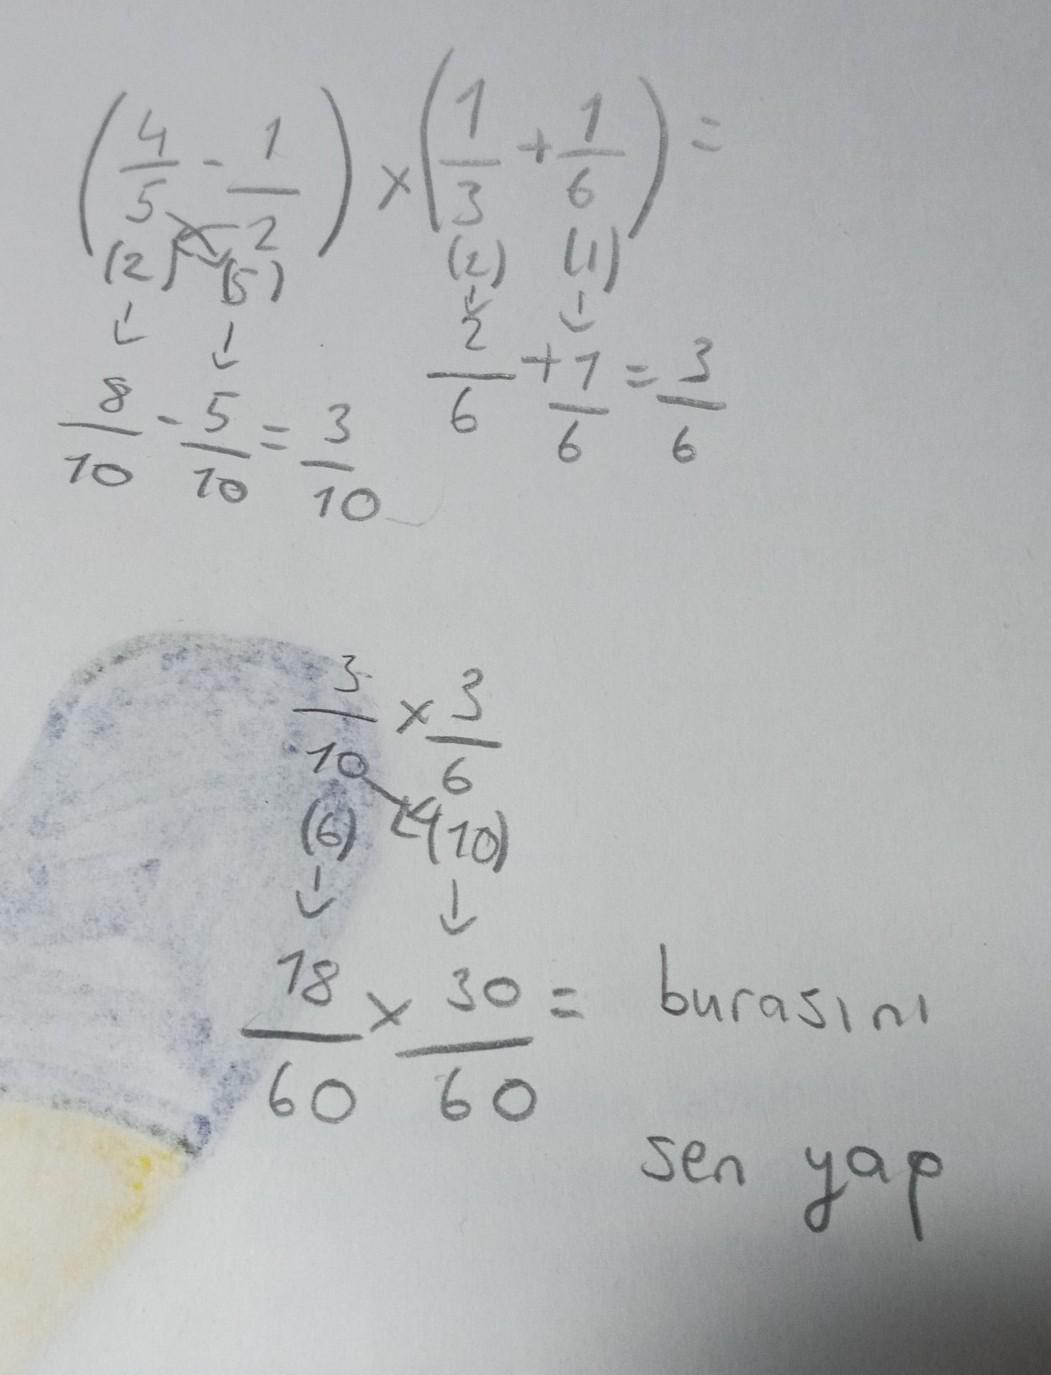 (4/5 - 1/2) × (1/3 + 1/6) =
(2) (5) (2) (1)
↓ ↓ ↓ ↓
8/10 - 5/10 = 3/10
2/6 + 1/6 = 3/6
3/10 × 3/6
(6) (10)
↓ ↓
18/60 × 30/60 = burasını
sen yap